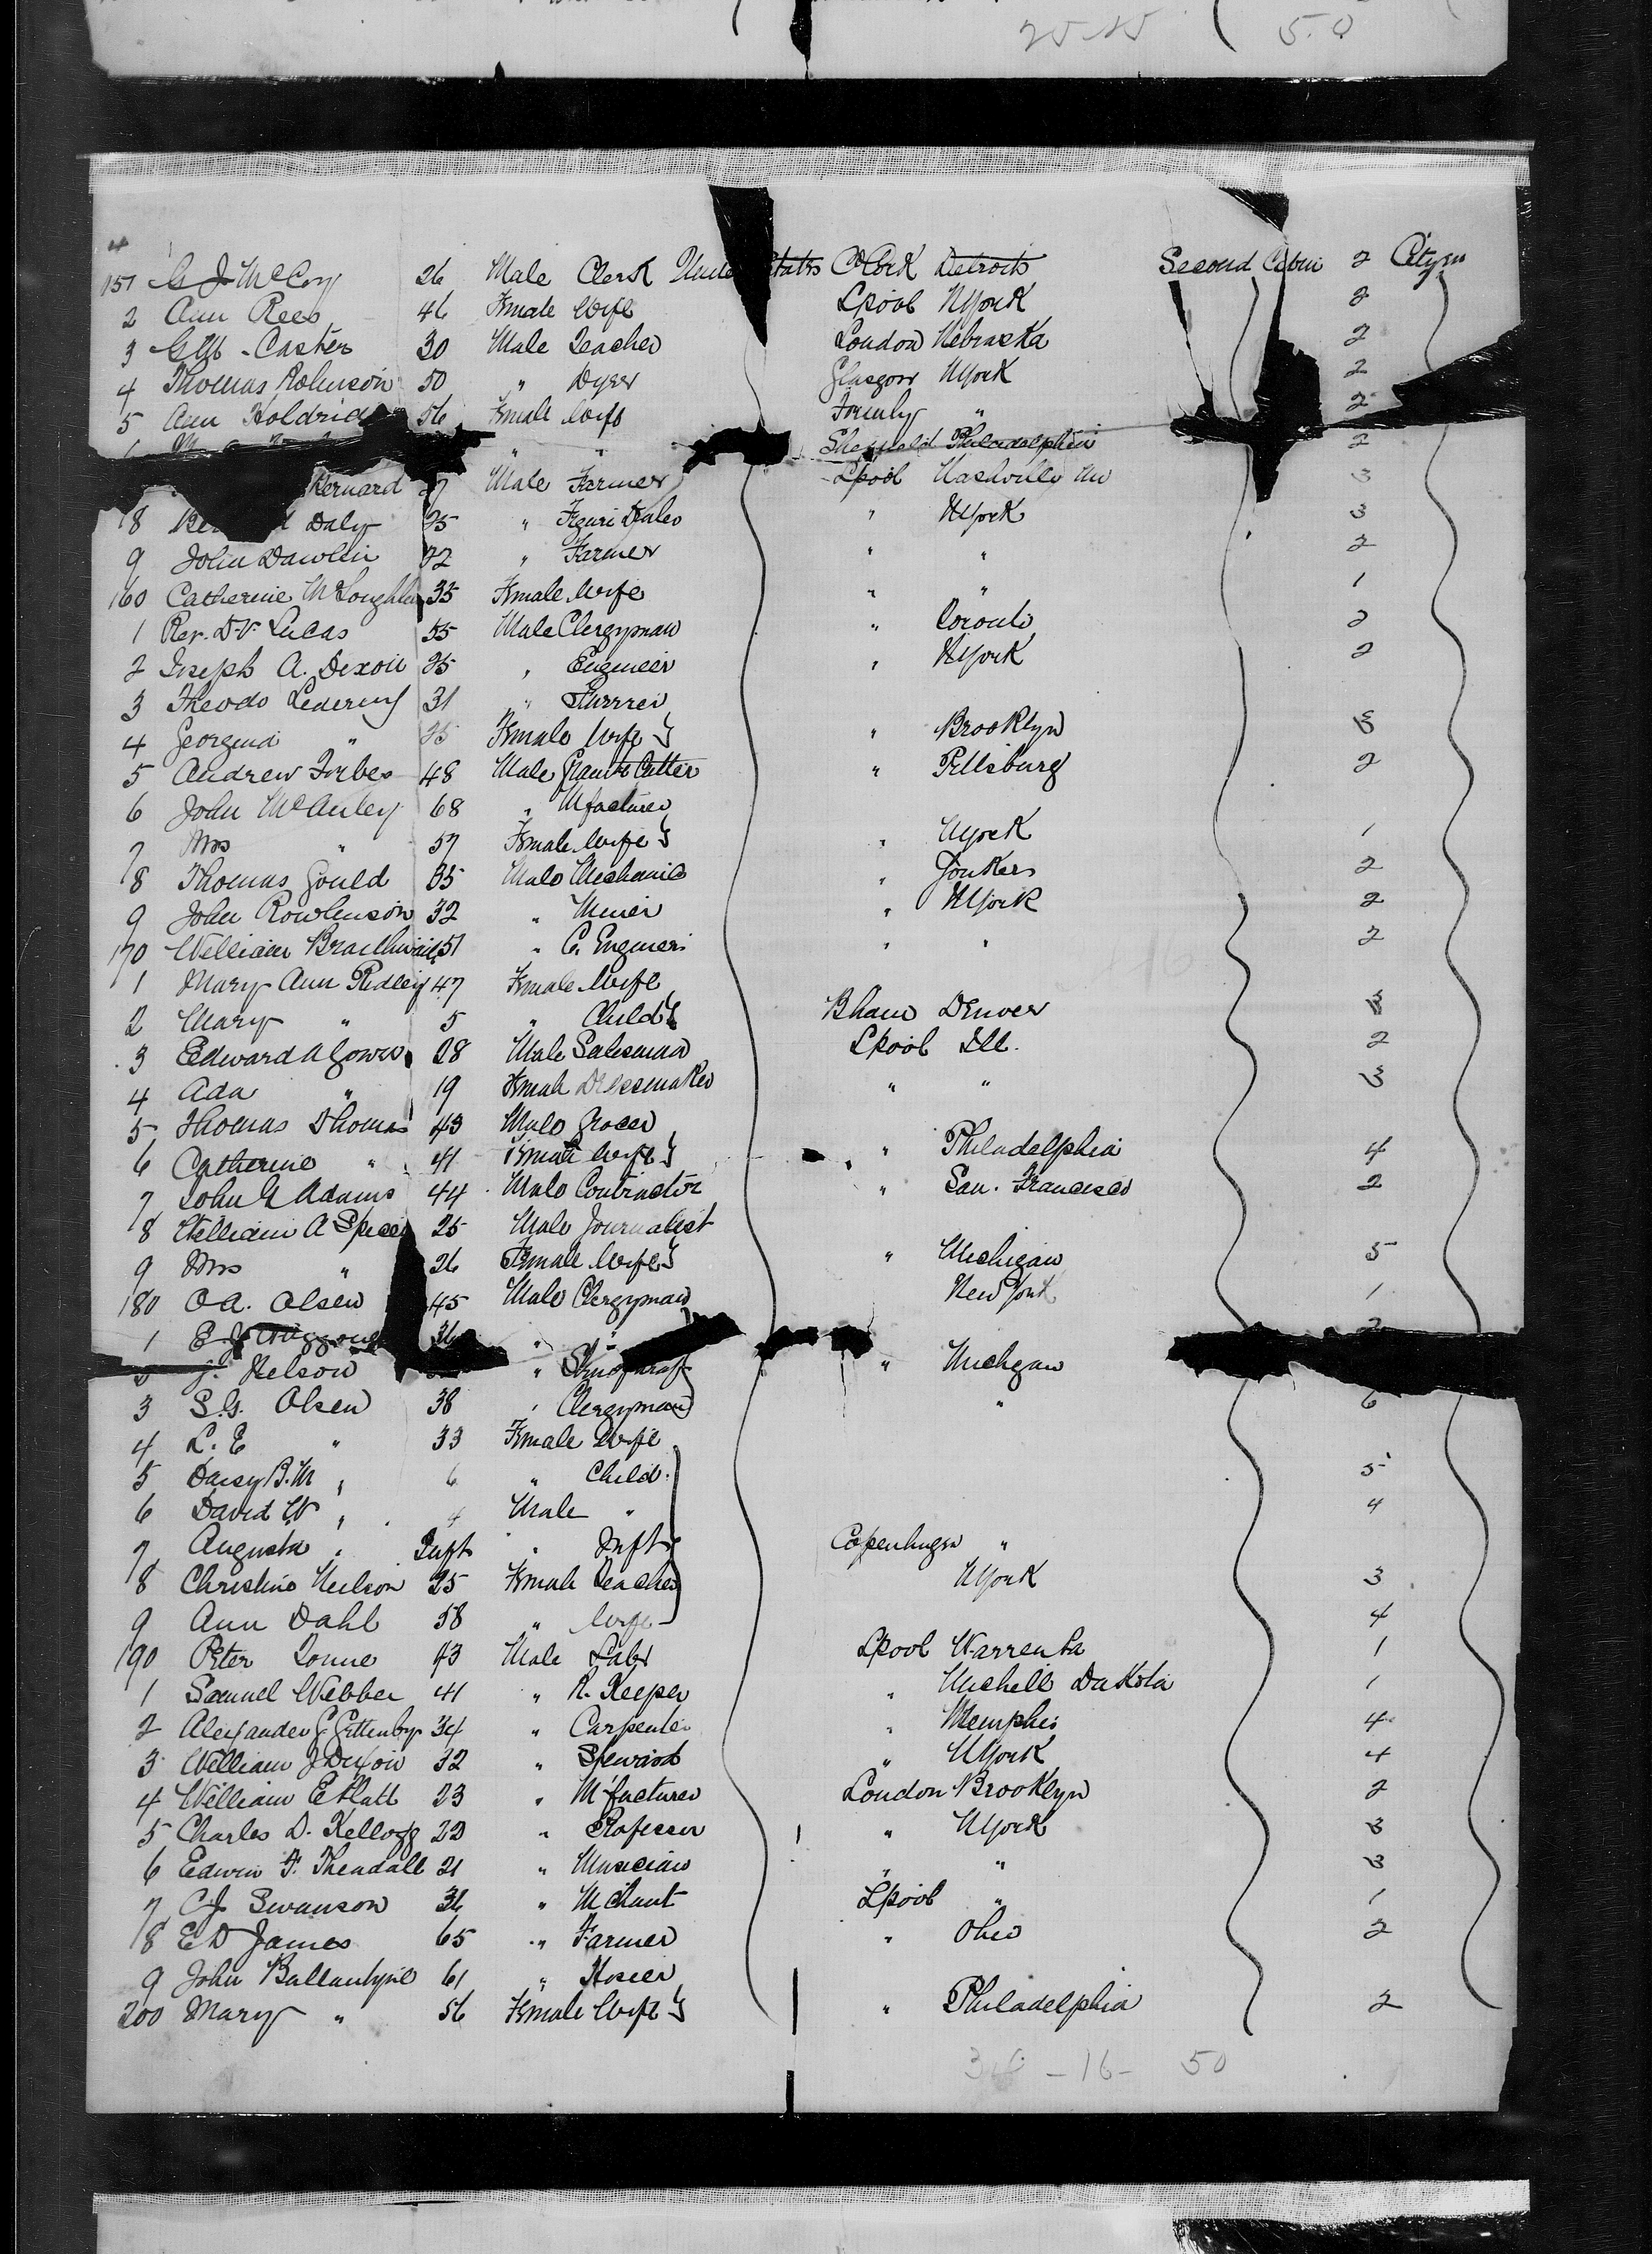 25-25 5.0
4
151 G J McCoy 26 Male Clerk United States Cork Detroits Second Cabin 2 Cityzn
2 Ann Rees 46 Fmale Wife Lpool NYork 2
3 G M. Caster 30 Male Teacher London Nebraska 2
4 Thomas Robinson 50 " Dyer Glasgow NYork 2
5 Ann Holdrid 56 Fmale Wife " 2
" " Sheffield Philadelphia 2
Bernard 7 Male Farmer Lpool Nashville 3
8 Daly 25 " " NYork 3
9 John Dawlin 32 " Farmer " " 2
160 Catherine McLoughlin 35 Fmale Wife " " 1
1 Rev. D.V. Lucas 55 Male Clergyman " Toronto 2
2 Joseph A. Dixon 25 " Engineer " NYork 2
3 Theodo 31 " Furrier
4 Georgina " 25 Fmale Wife " Brooklyn 3
5 Andrew Forbes 48 Male Granite Cutter " Pittsburg 2
6 John McAuley 68 " Mfacturer
7 Mrs " 57 Fmale Wife " NYork 1
8 Thomas Gould 35 Male Mechanic " Yonkers 2
9 John Rowlinson 32 " Miner " NYork 2
170 William Braithwaite 51 " C. Engineer " " 2
1 Mary Ann Ridley 47 Fmale Wife
2 Mary " 5 " Child Bham Denver 3
3 Edward A Gower 28 Male Salesman Lpool Ill. 2
4 Ada " 19 Fmale Dressmaker " " 3
5 Thomas Thomas 43 Male Grocer
6 Catherine " 41 Fmale Wife " Philadelphia 4
7 John Q Adams 44 Male Contractor " San. Francisco 2
8 William A Spicer 25 Male Journalist
9 Mrs " 26 Fmale Wife " Michigan 5
180 O A. Olsen 45 Male Clergyman New York 1
1 E J 36 " " 2
2 J. Nelson " Stenograf " Michigan
3 S.G. Olsen 38 " Clergyman " 6
4 L. E " 33 Fmale Wife
5 Daisy B. M " 6 " Child 5
6 David W " 4 Male " 4
7 Augusta " Inft " Inft Copenhagen "
8 Christine Neilson 25 Fmale Teacher NYork 3
9 Ann Dahl 58 " Wife 4
190 Peter 43 Male Labr Lpool 1
1 Samuel Webber 41 " R. Keeper " Michell Dakota 1
2 Alexander G 34 " Carpenter " Memphis 4
3 William J Dixon 32 " Steward " NYork 4
4 William E Platt 23 " M'facturer London Brooklyn 2
5 Charles D. Kellogg 22 " Professor " NYork 3
6 Edwin F. Thendall 21 " Musician " " 3
7 C J. Swanson 36 " Mchant Lpool " 1
8 E D James 65 " Farmer " Ohio 2
9 John Ballantyne 61 " Hosier
200 Mary " 56 Fmale Wife " Philadelphia 2
-16- 50